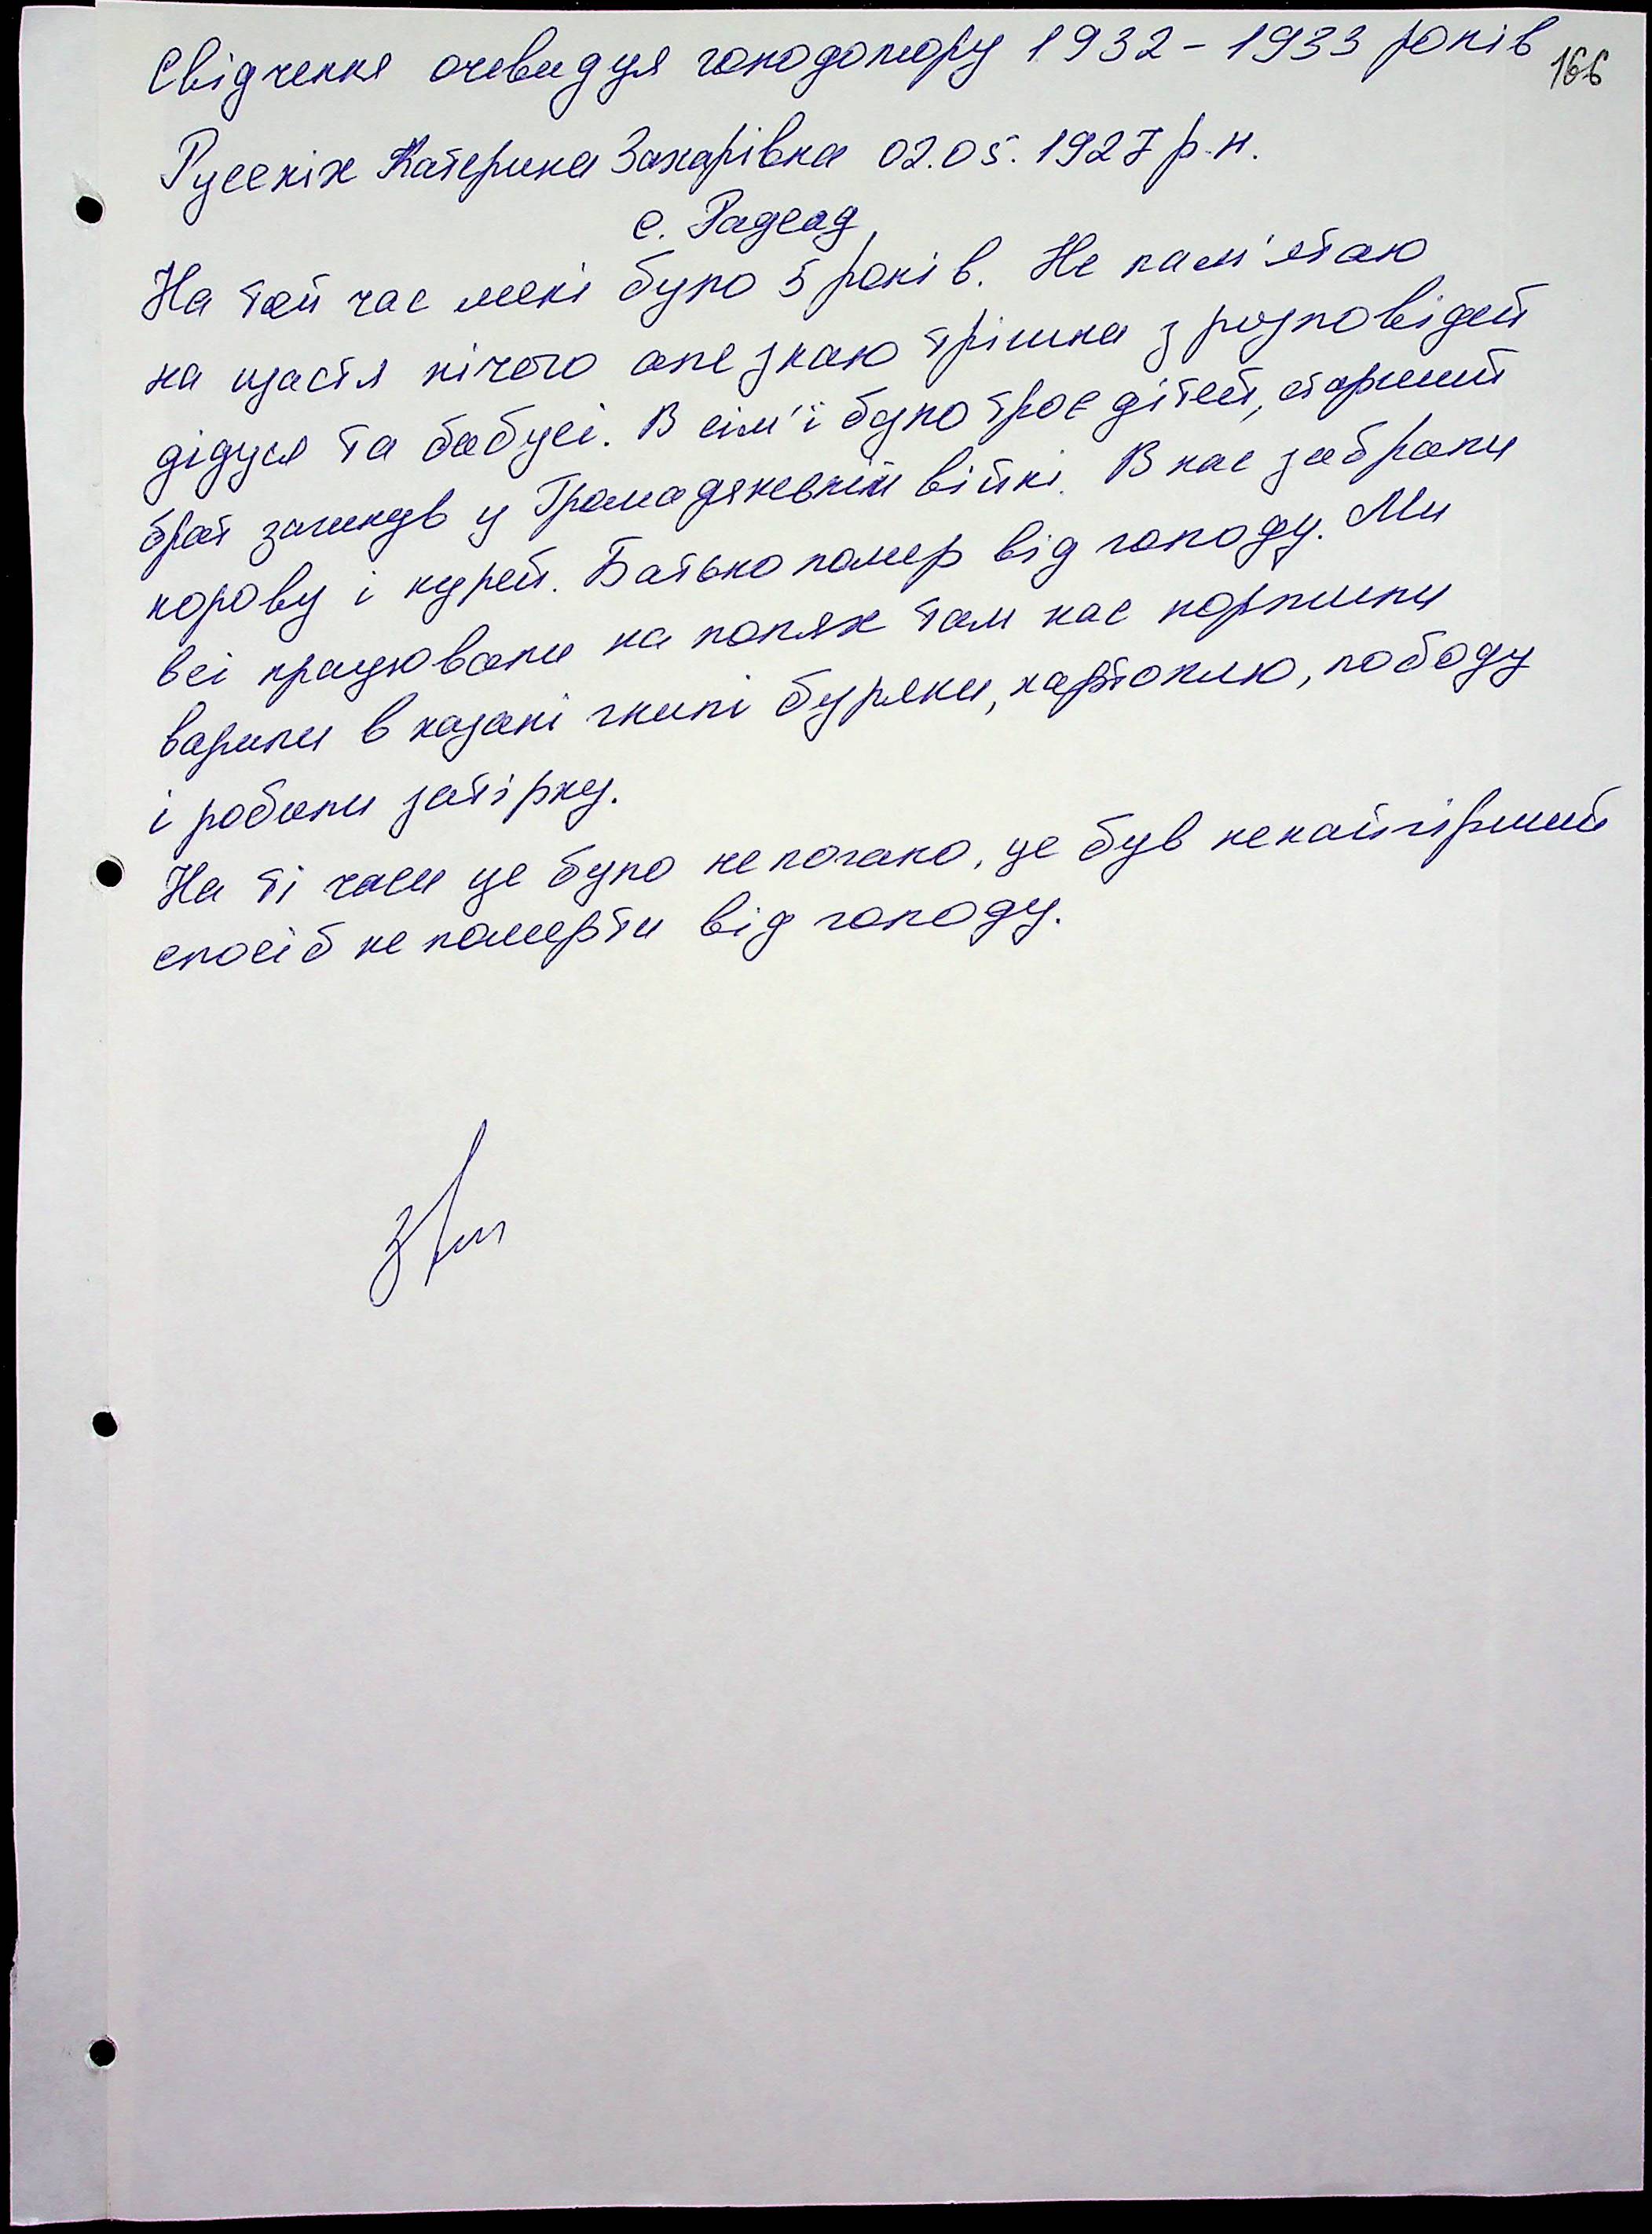 Свідчення очевидця голодомору 1932 - 1933 років
166
Русскіх Катерина Захарівна 02.05.1927 р.н.
с. Радсад
На той час мені було 5 років. Не пам'ятаю
на щастя нічого але знаю трішки з розповідей
дідуся та бабусі. В сім'ї було троє дітей, старший
брат загинув у Громадянській війні. В нас забрали
корову і курей. Батько помер від голоду. Ми
всі працювали на полях там нас кормили
варили в казані гнилі буряки, картоплю, лободу
і робили затірку.
На ті часи це було непогано, це був ненайгірший
спосіб не померти від голоду.